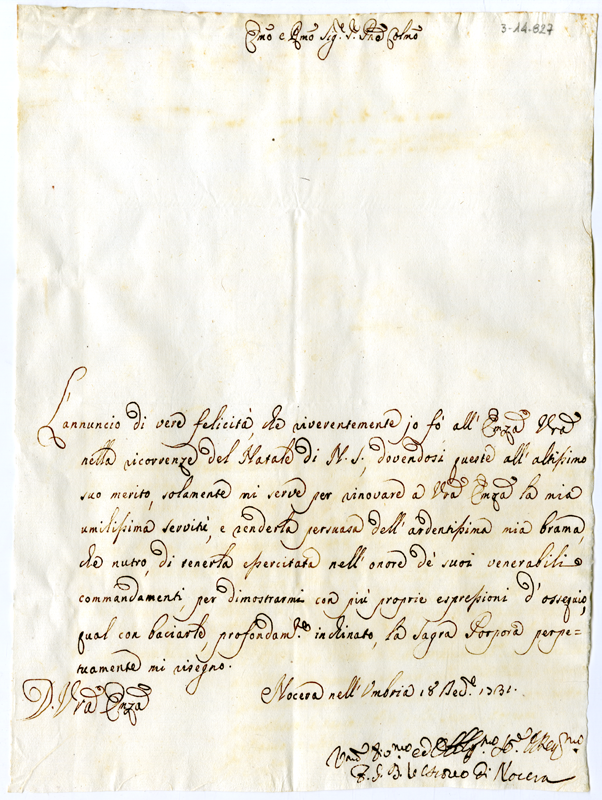 3-14-827
Emo e Rmo Sig.r Pne Colmo
L'annuncio di vere felicità, che riverentemente jo fò all' Emza Vra
nella ricorrenze del Natale di N. S., dovendosi queste all' altissimo
suo merito, solamente mi serve per rinovare a Vra Emza la mia
umilissima servitù, e renderla persuasa dell' ardentissima mia brama,
che nutro, di tenerla esercitata nell' onore de' suoi venerabili
commandamenti, per dimostrarmi con più proprie espressioni d'ossequio,
qual con baciarle, profondam.te inchinato, la Sagra Porpora perpe-
tuamente mi risegno.
D. Vra Emza
Nocera nell' Umbria 18 Xbre 1731.
Vescovo di Nocera